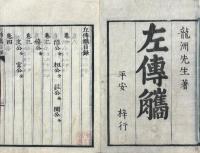 龍洲先生著
左傳觿
平安 梓行
左傳觿目錄
卷一
隱公 桓公 莊公 閔公
卷二
僖公
卷三
文公 宣公
卷四